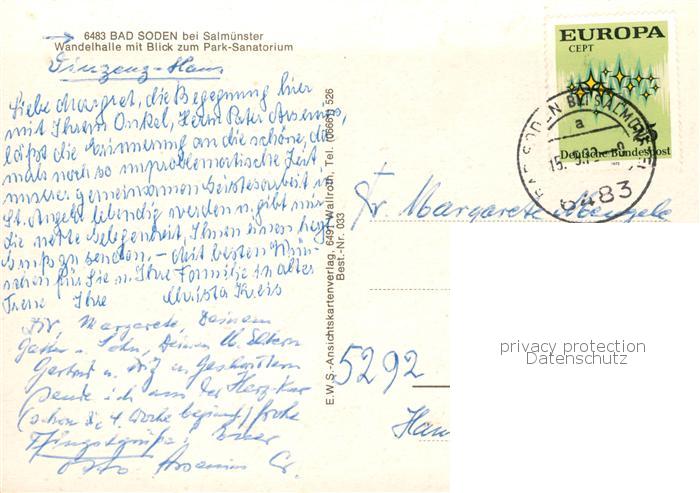 6483 BAD SODEN bei Salmünster
Wandelhalle mit Blick zum Park-Sanatorium
Vinzenz-Haus
Liebe Margret, die Begegnung hier
mit Ihrem Onkel, Herrn Pater Arsenius,
läßt die Erinnerung an die schöne, da-
mals noch so unproblematische Zeit
unserer gemeinsamen Geistesarbeit in
St. Angela lebendig werden u. gibt mir
die nette Gelegenheit, Ihnen einen herzl.
Gruß zu senden. – Mit besten Wün-
schen für Sie u. Ihre Familie in alter
Treue Ihre Christa Kreis
Dir, Margarete, Deinem
Gatten u. Sohn, Deinen lb. Eltern
Gertrud u. und Geschwistern
sende ich aus der Herz-Kur
(schon d. 4. Woche beginnt) frohe
Pfingstgrüße! Euer
Arsenius
E.W.S.-Ansichtskartenverlag, 6491 Wallroth, Tel. (06661) 526
Best.-Nr. 033
EUROPA
CEPT
Deutsche Bundespost
BAD SODEN BEI SALMÜNSTER
a
6483
Fr. Margarete
5292
privacy protection
Datenschutz